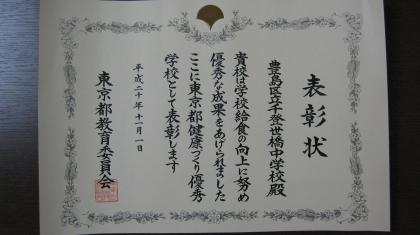 表彰状
豊島区立千登世橋中学校殿
貴校は学校給食の向上に努め
優秀な成果をあげられました
ここに東京都健康づくり優秀
学校として表彰します
平成二十年十一月一日
東京都教育委員会